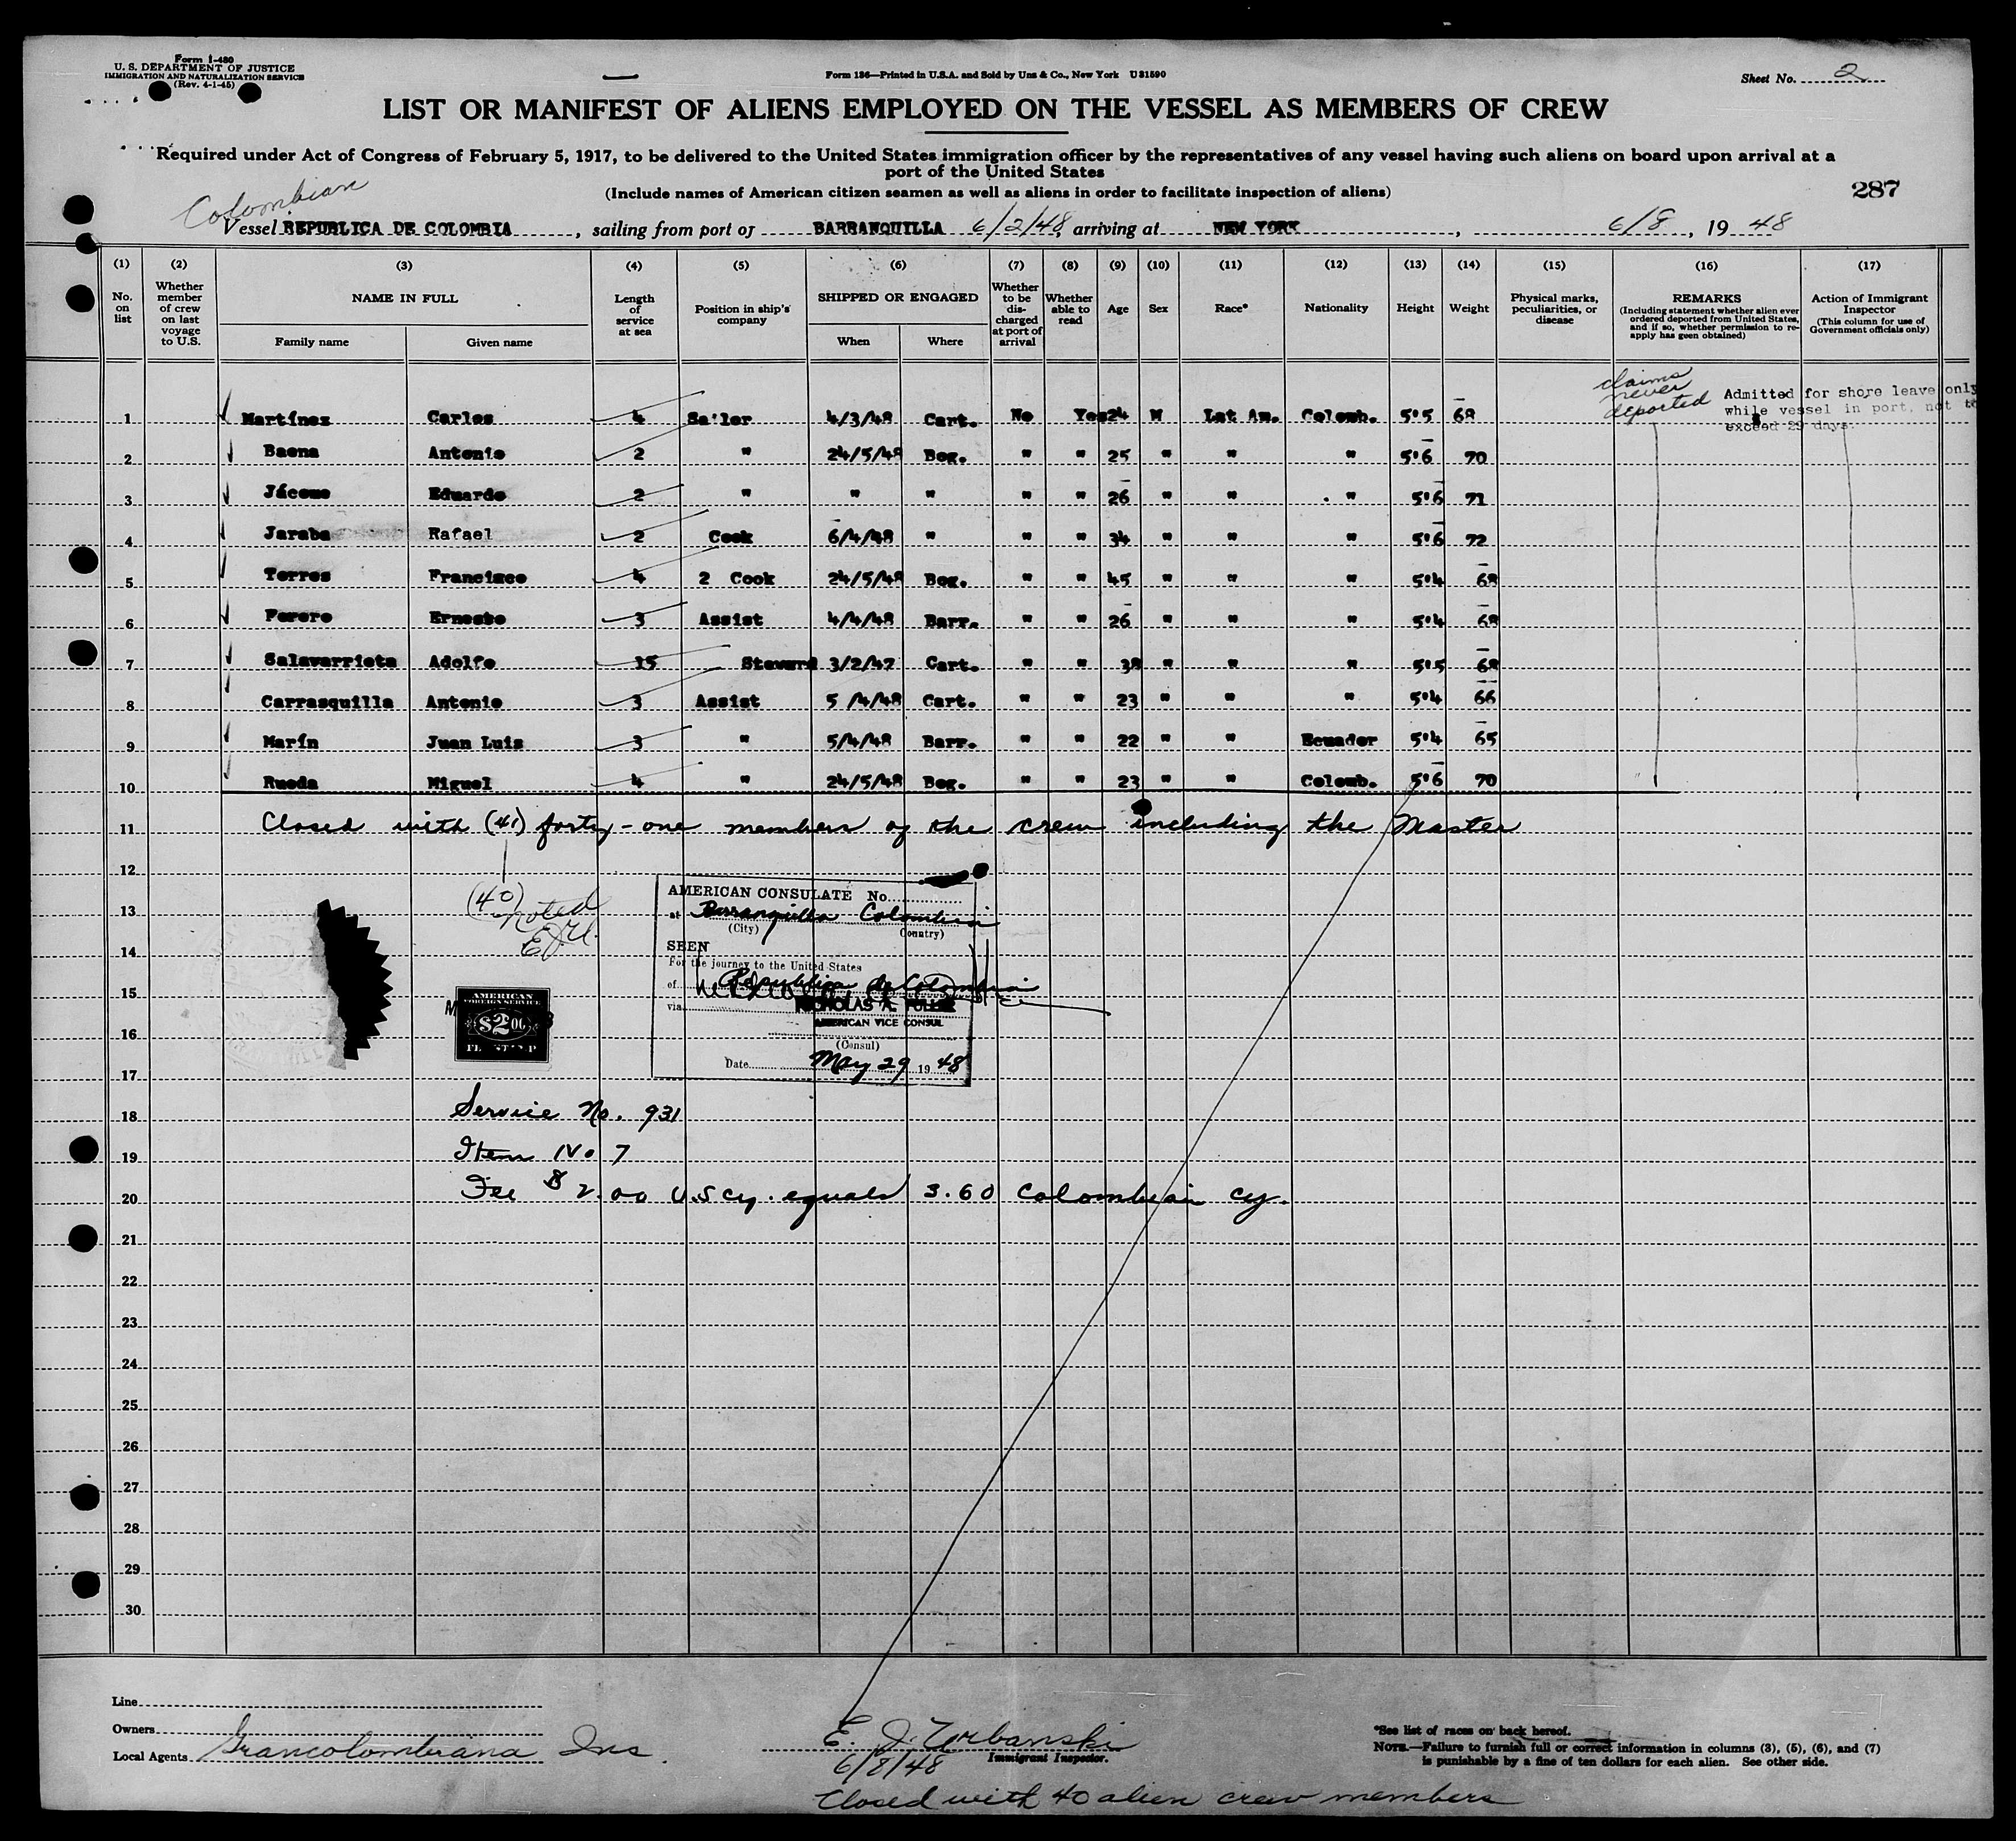 Form I-480
U. S. DEPARTMENT OF JUSTICE
IMMIGRATION AND NATURALIZATION SERVICE
(Rev. 4-1-45)
Form 186—Printed in U.S.A. and Sold by Unz & Co., New York U 31590
Sheet No. 2
LIST OR MANIFEST OF ALIENS EMPLOYED ON THE VESSEL AS MEMBERS OF CREW
Required under Act of Congress of February 5, 1917, to be delivered to the United States immigration officer by the representatives of any vessel having such aliens on board upon arrival at a
port of the United States
(Include names of American citizen seamen as well as aliens in order to facilitate inspection of aliens)
287
Colombian
Vessel REPUBLICA DE COLOMBIA, sailing from port of BARRANQUILLA 6/2/48, arriving at NEW YORK, 6/8, 19 48
(1) (2) (3) (4) (5) (6) (7) (8) (9) (10) (11) (12) (13) (14) (15) (16) (17)
No. on list
Whether member of crew on last voyage to U.S.
NAME IN FULL
Family name
Given name
Length of service at sea
Position in ship's company
SHIPPED OR ENGAGED
When
Where
Whether to be discharged at port of arrival
Whether able to read
Age
Sex
Race*
Nationality
Height
Weight
Physical marks, peculiarities, or disease
REMARKS
(Including statement whether alien ever ordered deported from United States, and if so, whether permission to reapply has geen obtained)
Action of Immigrant Inspector
(This column for use of Government officials only)
claims never deported
Admitted for shore leave only
while vessel in port, not to
exceed 29 days.
1 Martínez Carlos 4 Sailor 4/3/48 Cart. No Yes 24 M Lat Am. Colomb. 5'5 68
2 Baena Antonio 2 " 24/5/48 Bog. " " 25 " " " 5'6 70
3 Jácome Eduardo 2 " " " " " 26 " " " 5'6 71
4 Jaraba Rafael 2 Cook 6/4/48 " " " 34 " " " 5'6 72
5 Torres Francisco 4 2 Cook 24/5/48 Bog. " " 45 " " " 5'4 68
6 Forero Ernesto 3 Assist 4/4/48 Barr. " " 26 " " " 5'4 68
7 Salavarrieta Adolfo 15 Steward 3/2/47 Cart. " " 38 " " " 5'5 68
8 Carrasquilla Antonio 3 Assist 5/4/48 Cart. " " 23 " " " 5'4 66
9 Marín Juan Luis 3 " 5/4/48 Barr. " " 22 " " Ecuador 5'4 65
10 Rueda Miguel 4 " 24/5/48 Bog. " " 23 " " Colomb. 5'6 70
11 Closed with (41) forty-one members of the crew including the Master
12
(40) noted
13
14
15
16
17
AMERICAN CONSULATE No.
at Barranquilla Colombia
(City) (Country)
SEEN
For the journey to the United States
of Republica de Colombia
via
NICHOLAS A.
AMERICAN VICE CONSUL
(Consul)
Date May 29 19 48
AMERICAN
FOREIGN SERVICE
$2.00
FEE STAMP
18 Service No. 931
19 Item No 7
20 Fee $ 2.00 U.S cy. equals 3.60 Colombian cy.
21
22
23
24
25
26
27
28
29
30
Line
Owners
Local Agents Grancolombiana Inc.
E. J. Urbanski
Immigrant Inspector.
6/8/48
Closed with 40 alien crew members
*See list of races on back hereof.
NOTE.—Failure to furnish full or correct information in columns (3), (5), (6), and (7)
is punishable by a fine of ten dollars for each alien. See other side.